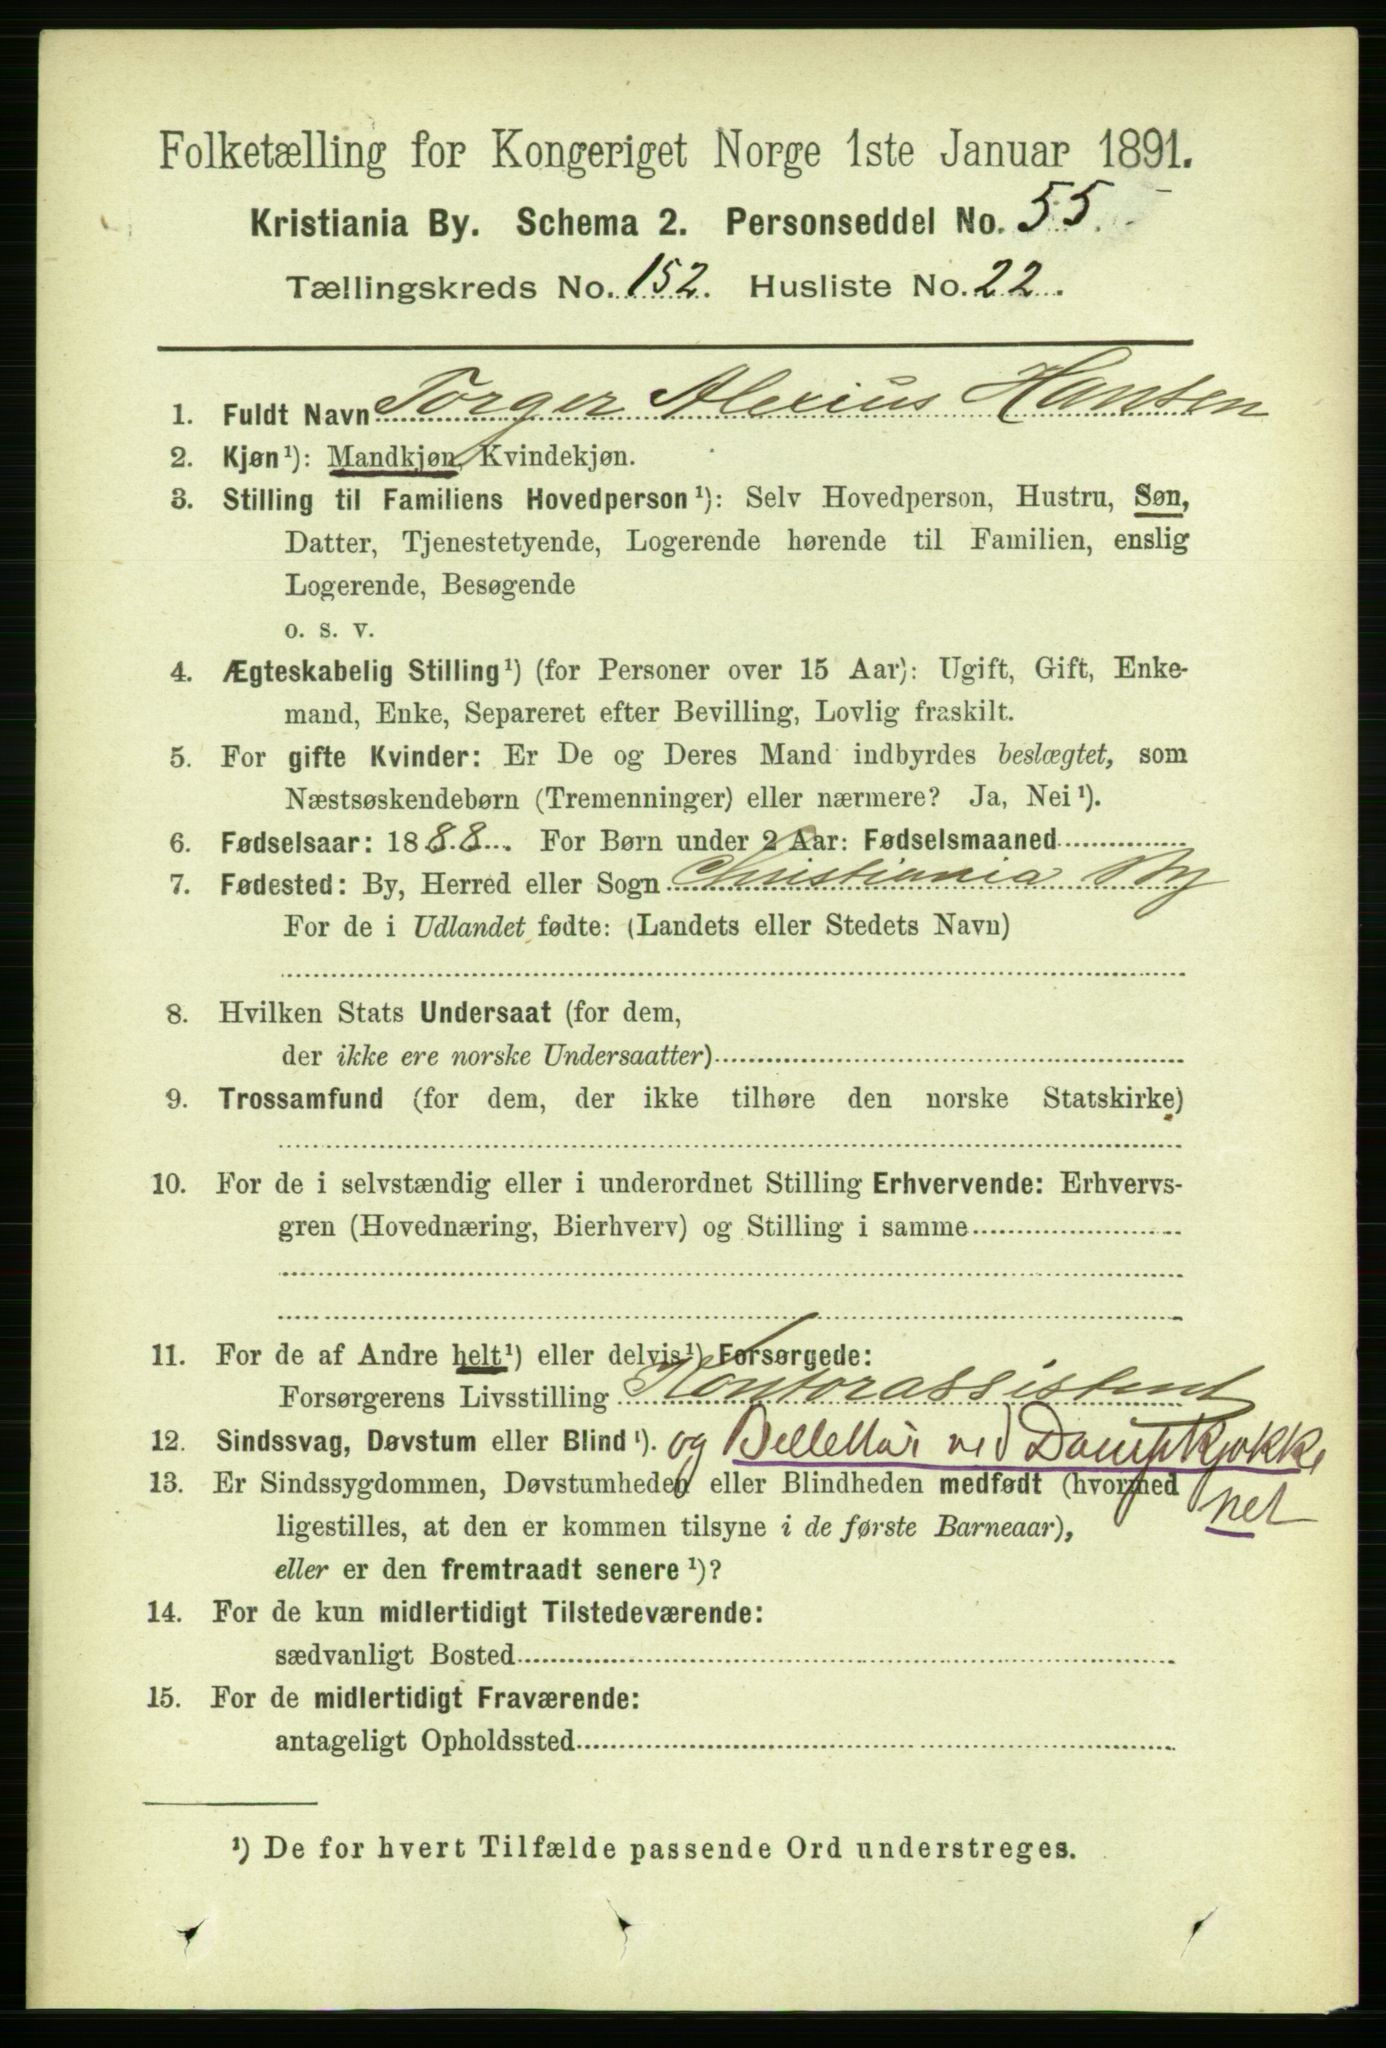 Folketælling for Kongeriget Norge 1ste Januar 1891.
Kristiania By. Schema 2. Personseddel No. 55.
Tællingskreds No. 152. Husliste No. 22.
1. Fuldt Navn Torger Alexius Hansen
2. Kjøn¹): Mandkjøn, Kvindekjøn.
3. Stilling til Familiens Hovedperson¹): Selv Hovedperson, Hustru, Søn,
Datter, Tjenestetyende, Logerende hørende til Familien, enslig
Logerende, Besøgende
o. s. v.
4. Ægteskabelig Stilling¹) (for Personer over 15 Aar): Ugift, Gift, Enke-
mand, Enke, Separeret efter Bevilling, Lovlig fraskilt.
5. For gifte Kvinder: Er De og Deres Mand indbyrdes beslægtet, som
Næstsøskendebørn (Tremenninger) eller nærmere? Ja, Nei¹).
6. Fødselsaar: 1888. For Børn under 2 Aar: Fødselsmaaned
7. Fødested: By, Herred eller Sogn Christiania By
For de i Udlandet fødte: (Landets eller Stedets Navn)
8. Hvilken Stats Undersaat (for dem,
der ikke ere norske Undersaatter)
9. Trossamfund (for dem, der ikke tilhøre den norske Statskirke)
10. For de i selvstændig eller i underordnet Stilling Erhvervende: Erhvervs-
gren (Hovednæring, Bierhverv) og Stilling i samme
11. For de af Andre helt¹) eller delvis¹) Forsørgede:
Forsørgerens Livsstilling Kontorassistent
12. Sindssvag, Døvstum eller Blind¹). og Billettør ved Dampkjøkke
13. Er Sindssygdommen, Døvstumheden eller Blindheden medfødt (hvormed net
ligestilles, at den er kommen tilsyne i de første Barneaar),
eller er den fremtraadt senere¹)?
14. For de kun midlertidigt Tilstedeværende:
sædvanligt Bosted
15. For de midlertidigt Fraværende:
antageligt Opholdssted
¹) De for hvert Tilfælde passende Ord understreges.